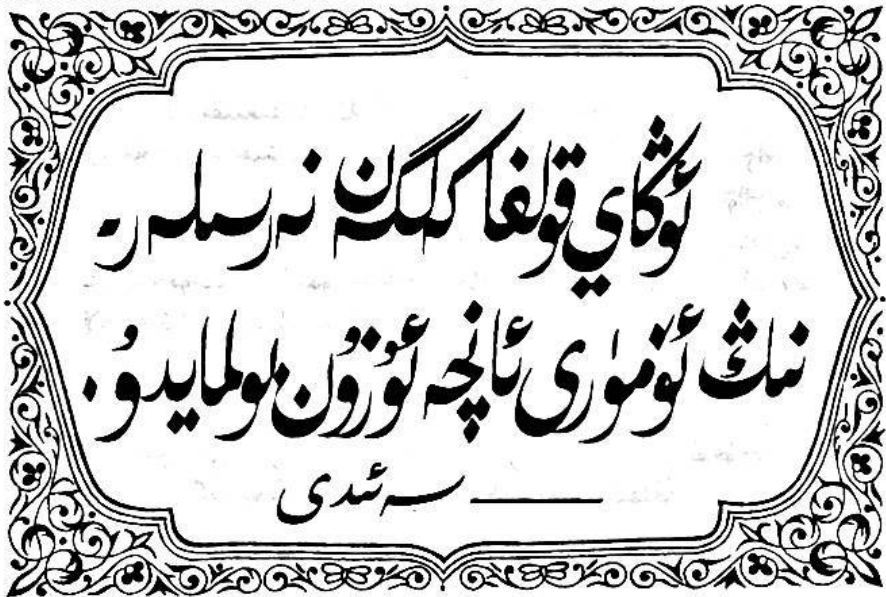 ئوڭاي قولغا كەلگەن نەرسىلەر-
نىڭ ئۆمۈرى ئانچە ئۇزۇن بولمايدۇ.
— سەئىدى